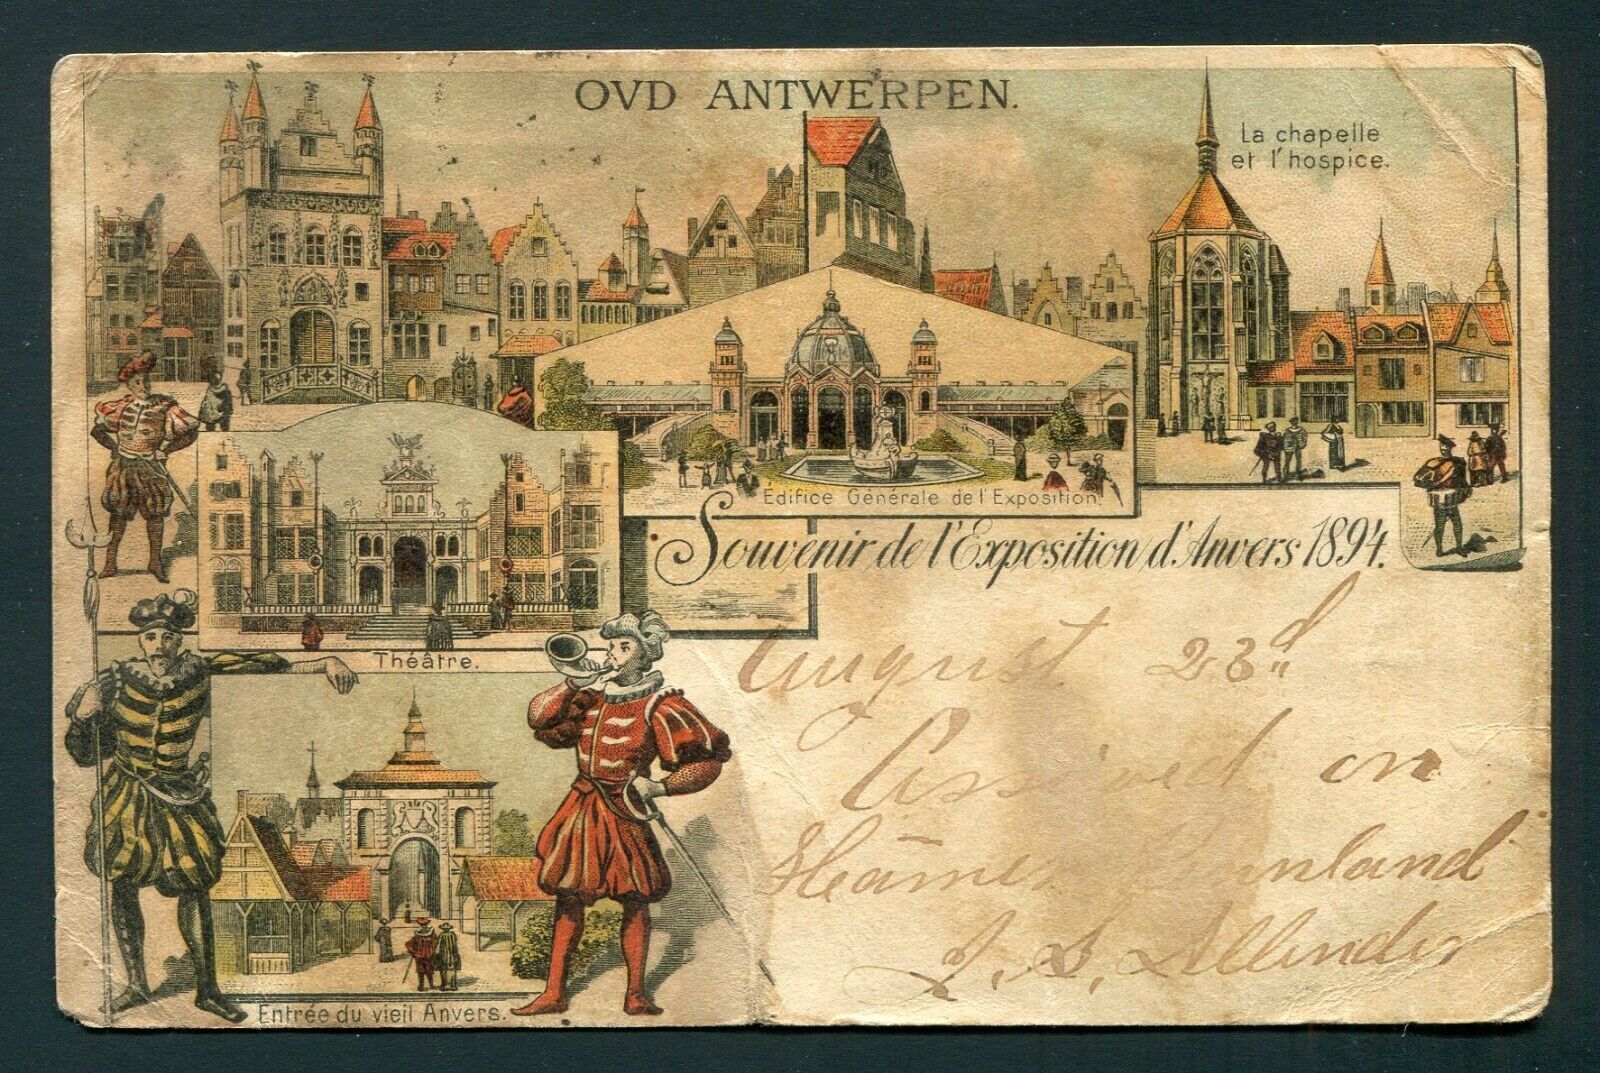 OVD ANTWERPEN.
La chapelle
et l'hospice.
Édifice Générale de l'Exposition.
Souvenir de l'Exposition d'Anvers 1894.
Théâtre.
Entrée du vieil Anvers.
August 23d
Arrived on
Steamer